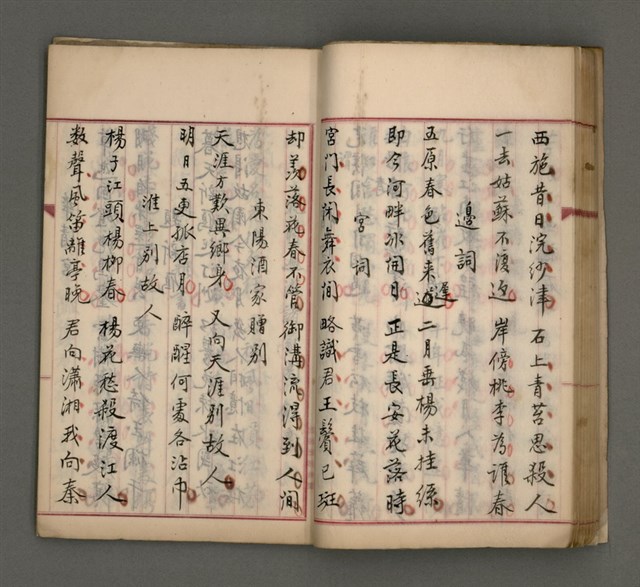 西施昔日浣紗津　石上青苔思殺人
一去姑蘇不復返　岸傍桃李為誰春
邊詞
五原春色舊來遲　二月垂楊未挂絲
即今河畔冰開日　正是長安花落時
宮詞
宮門長閑舞衣閒　略識君王鬢已斑
却羡落花春不管　御溝流得到人間
東陽酒家贈別
天涯方歎異鄉身　又向天涯別故人
明日五更孤店月　醉醒何處各沾巾
淮上別故人
楊子江頭楊柳春　楊花愁殺渡江人
数聲風笛離亭晚　君向瀟湘我向秦